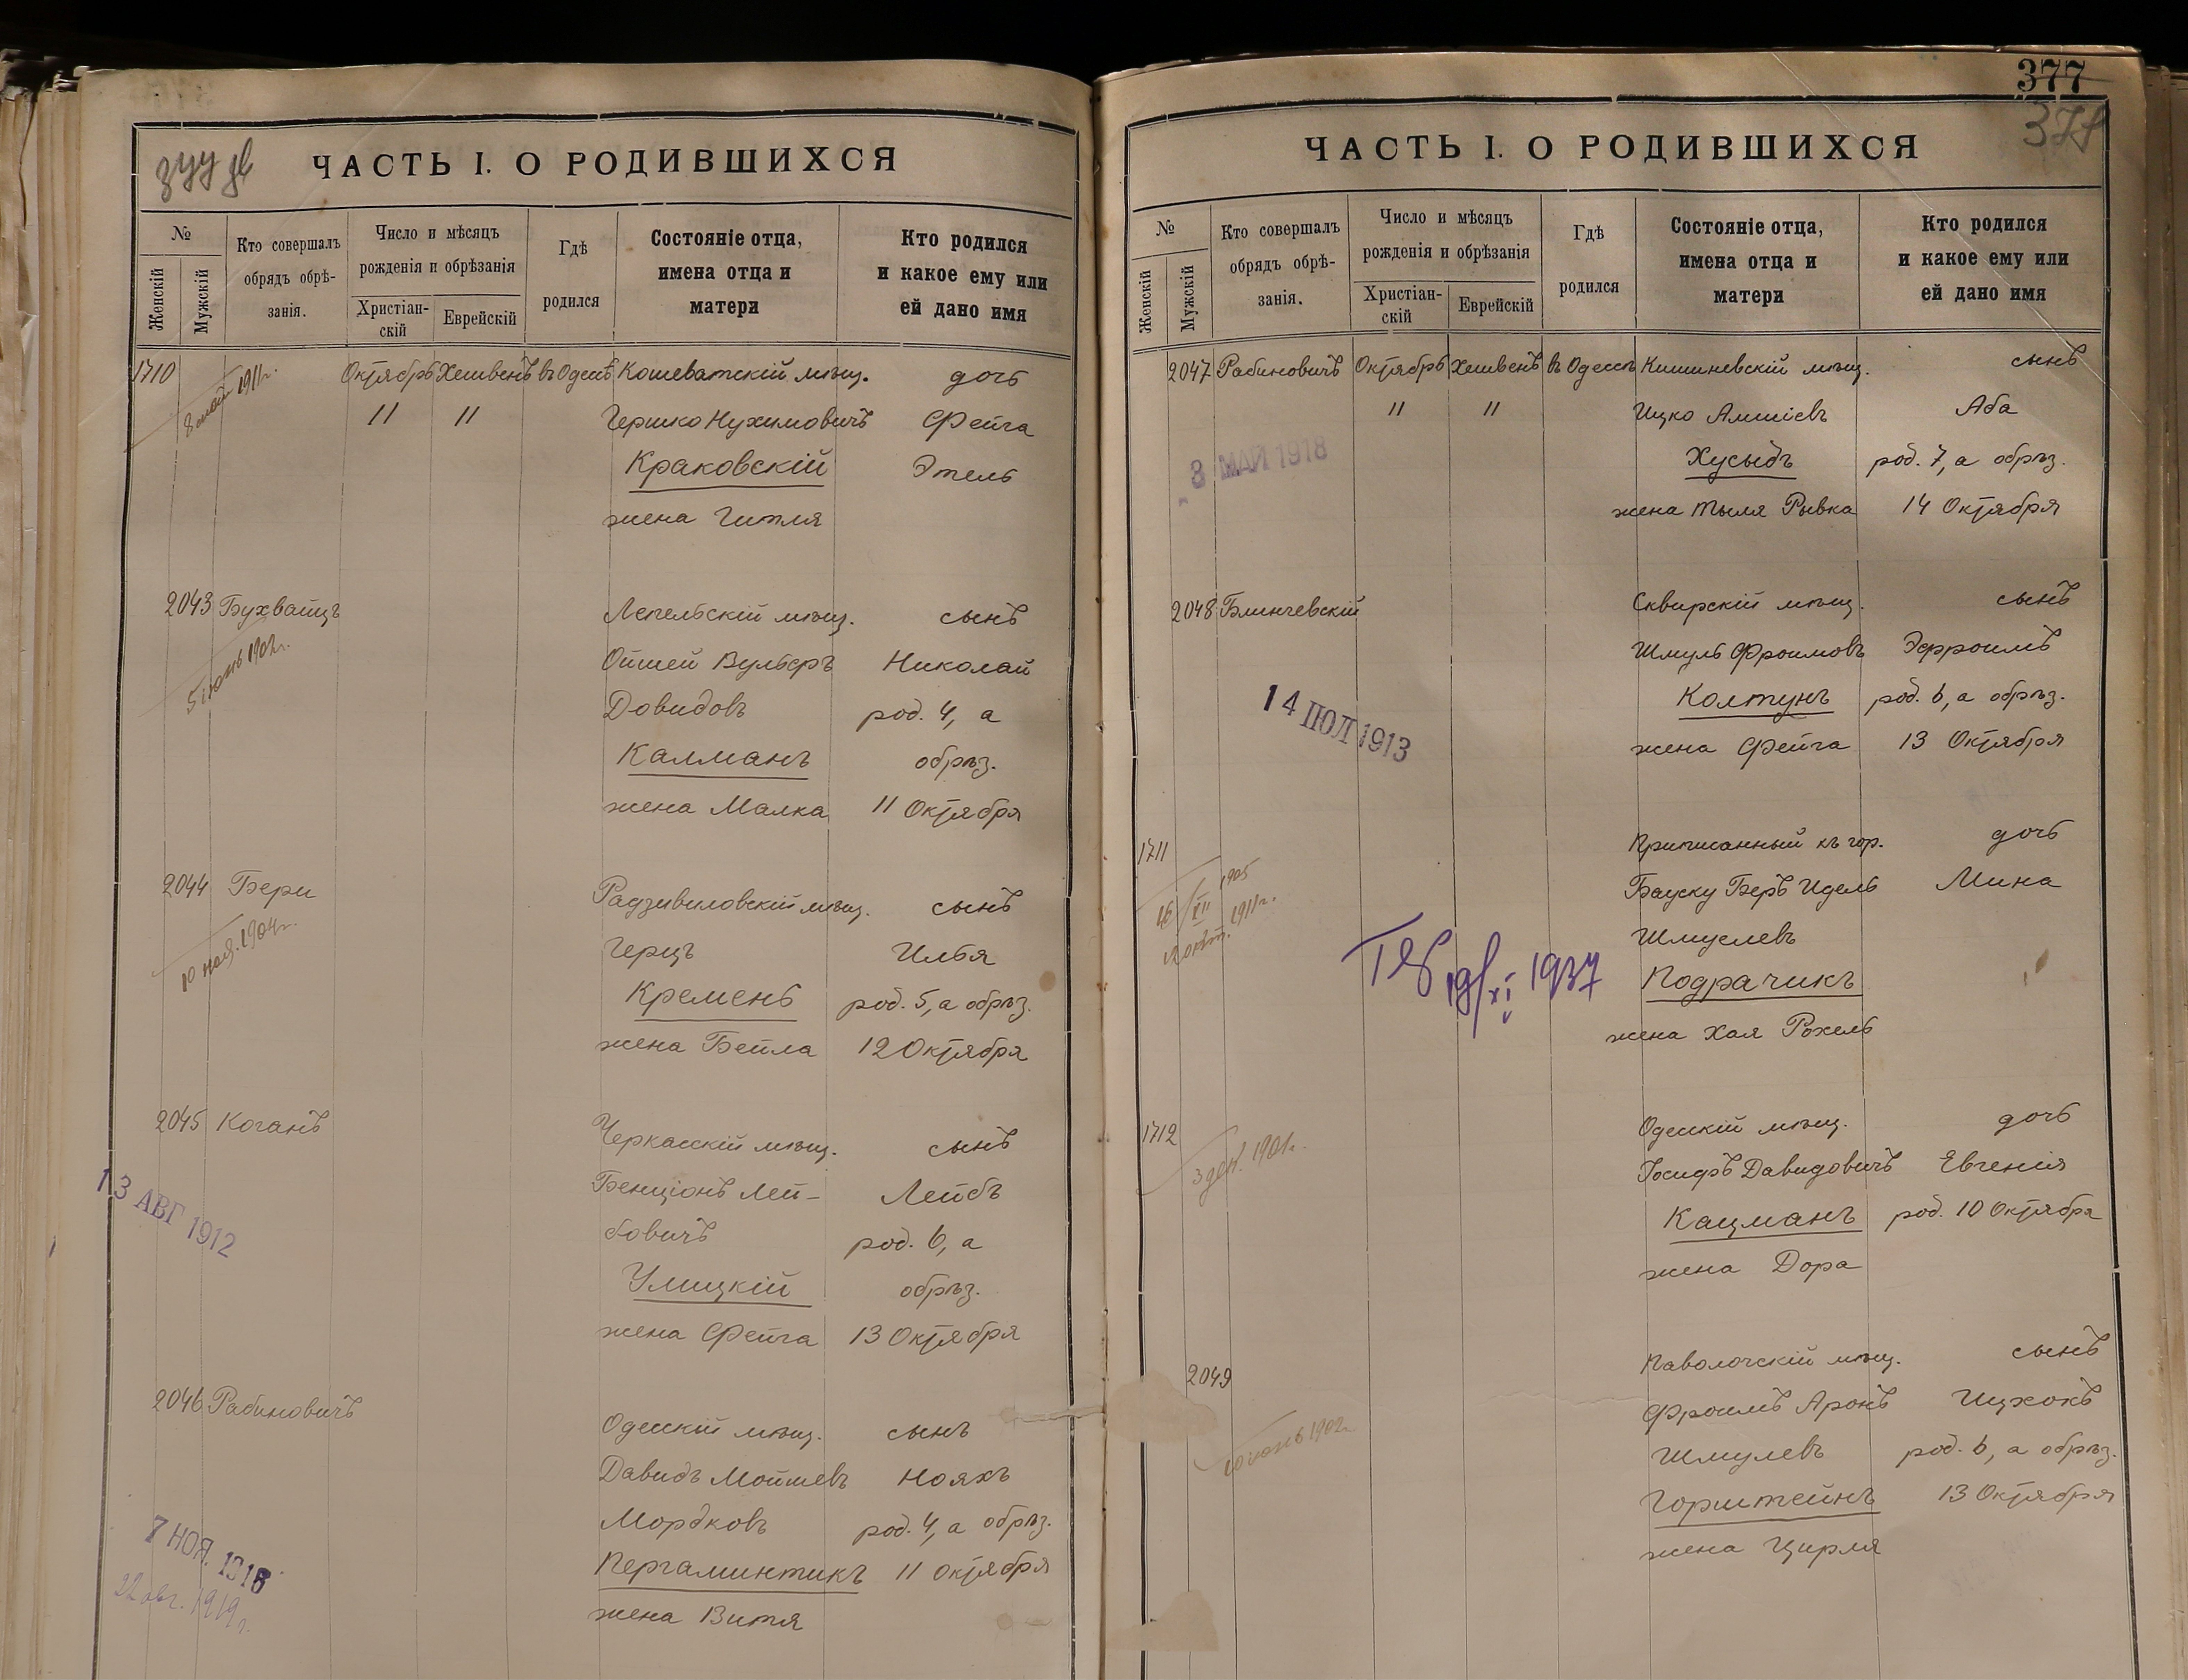 ЧАСТЬ I. О РОДИВШИХСЯ
№
Женскій
Мужскій
Кто совершалъ
обрядъ обрѣ-
занія.
Число и мѣсяцъ
рожденія и обрѣзанія
Христіан-
скій
Еврейскій
Гдѣ
родился
Состояніе отца,
имена отца и
матери
Кто родился
и какое ему или
ей дано имя
1710 Октябрь Хешвенъ въ Одессѣ Кошеватскій мѣщ. дочь
8 1911г.
11 11 Гершко Нухимовичъ Фейга
Краковскій Этель
жена Гитля
2043 Бухвайцъ Лепельскій мѣщ. сынъ
5 іюнь 1902г.
Ойшей Вульфъ Николай
Довидовъ род. 4, а
Калманъ обрѣз.
жена Малка 11 Октября
2044 Бери Радзивиловскій мѣщ. сынъ
10 ноя. 1904г.
Герцъ Илья
Кремень род. 5, а обрѣз.
жена Бейла 12 Октября
2045 Коганъ Черкасскій мѣщ. сынъ
13 АВГ 1912
Бенціонъ Лей- Лейбъ
бовичъ род. 6, а
Улицкій обрѣз.
жена Фейга 13 Октября
2046 Рабиновичъ Одесскій мѣщ. сынъ
Давидъ Мойшевъ Нояхъ
Мордковъ род. 4, а обрѣз.
7 НОЯ.
Пергаминтикъ 11 Октября
22 авг. 1919г.
жена Витя
377
ЧАСТЬ I. О РОДИВШИХСЯ
№
Женскій
Мужскій
Кто совершалъ
обрядъ обрѣ-
занія.
Число и мѣсяцъ
рожденія и обрѣзанія
Христіан-
скій
Еврейскій
Гдѣ
родился
Состояніе отца,
имена отца и
матери
Кто родился
и какое ему или
ей дано имя
2047 Рабиновичъ Октябрь Хешвенъ въ Одессѣ Кишиневскій мѣщ. сынъ
11 11 Ицко Аба
8 МАЙ 1918
Хусыдъ род. 7, а обрѣз.
жена Тыля Рывка 14 Октября
2048 Блинчевскій Сквирскій мѣщ. сынъ
Шмуль Фроимовъ Эфроимъ
14 ІЮЛ 1913
Колтунъ род. 6, а обрѣз.
жена Фейга 13 Октября
1711 Приписанный къ гор. дочь
16/XII 1905
Бауску Беръ Идель Мина
2 окт. 1911г.
Шмуелевъ
19/XI 1937
Подрачикъ
жена Хая Рохель
1712 Одесскій мѣщ. дочь
3 дек. 1901г.
Іосифъ Давидовичъ Евгенія
Кацманъ род. 10 Октября
жена Дора
2049 Паволочскій мѣщ. сынъ
Фроимъ Аронъ Ицхокъ
10 іюнь 1902г.
Шмулевъ род. 6, а обрѣз.
Горштейнъ 13 Октября
жена Цирля